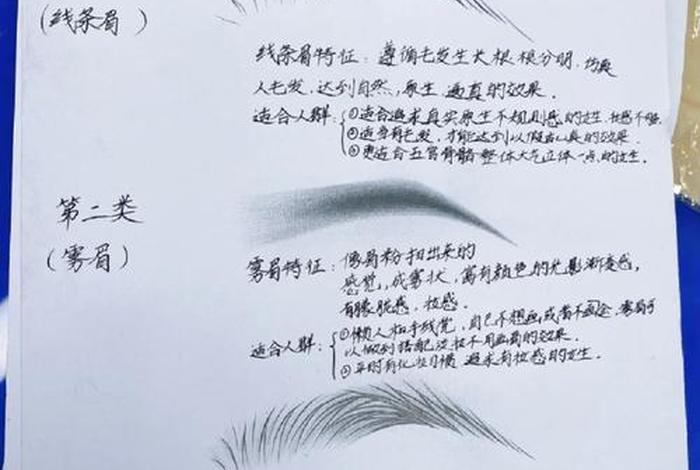 (线条眉)
线条眉特征：遵循毛发生长根根分明，仿真
人毛发，达到自然，原生，逼真的效果。
适合人群：①适合追求真实原生不规则感的女生，妆感不强
②适当有毛发，才能达到以假乱真的效果
③更适合五官骨骼整体大气立体一点的女生。
第二类
(雾眉)
雾眉特征：像眉粉扫出来的
感觉，成雾状，富有颜色的光影渐变感，
有朦胧感，妆感。
适合人群：①懒人和手残党，自己不想画或者不会画，雾眉可
以做到搭配淡妆不用画眉的效果。
②平时有化妆习惯 追求有妆感的女生。